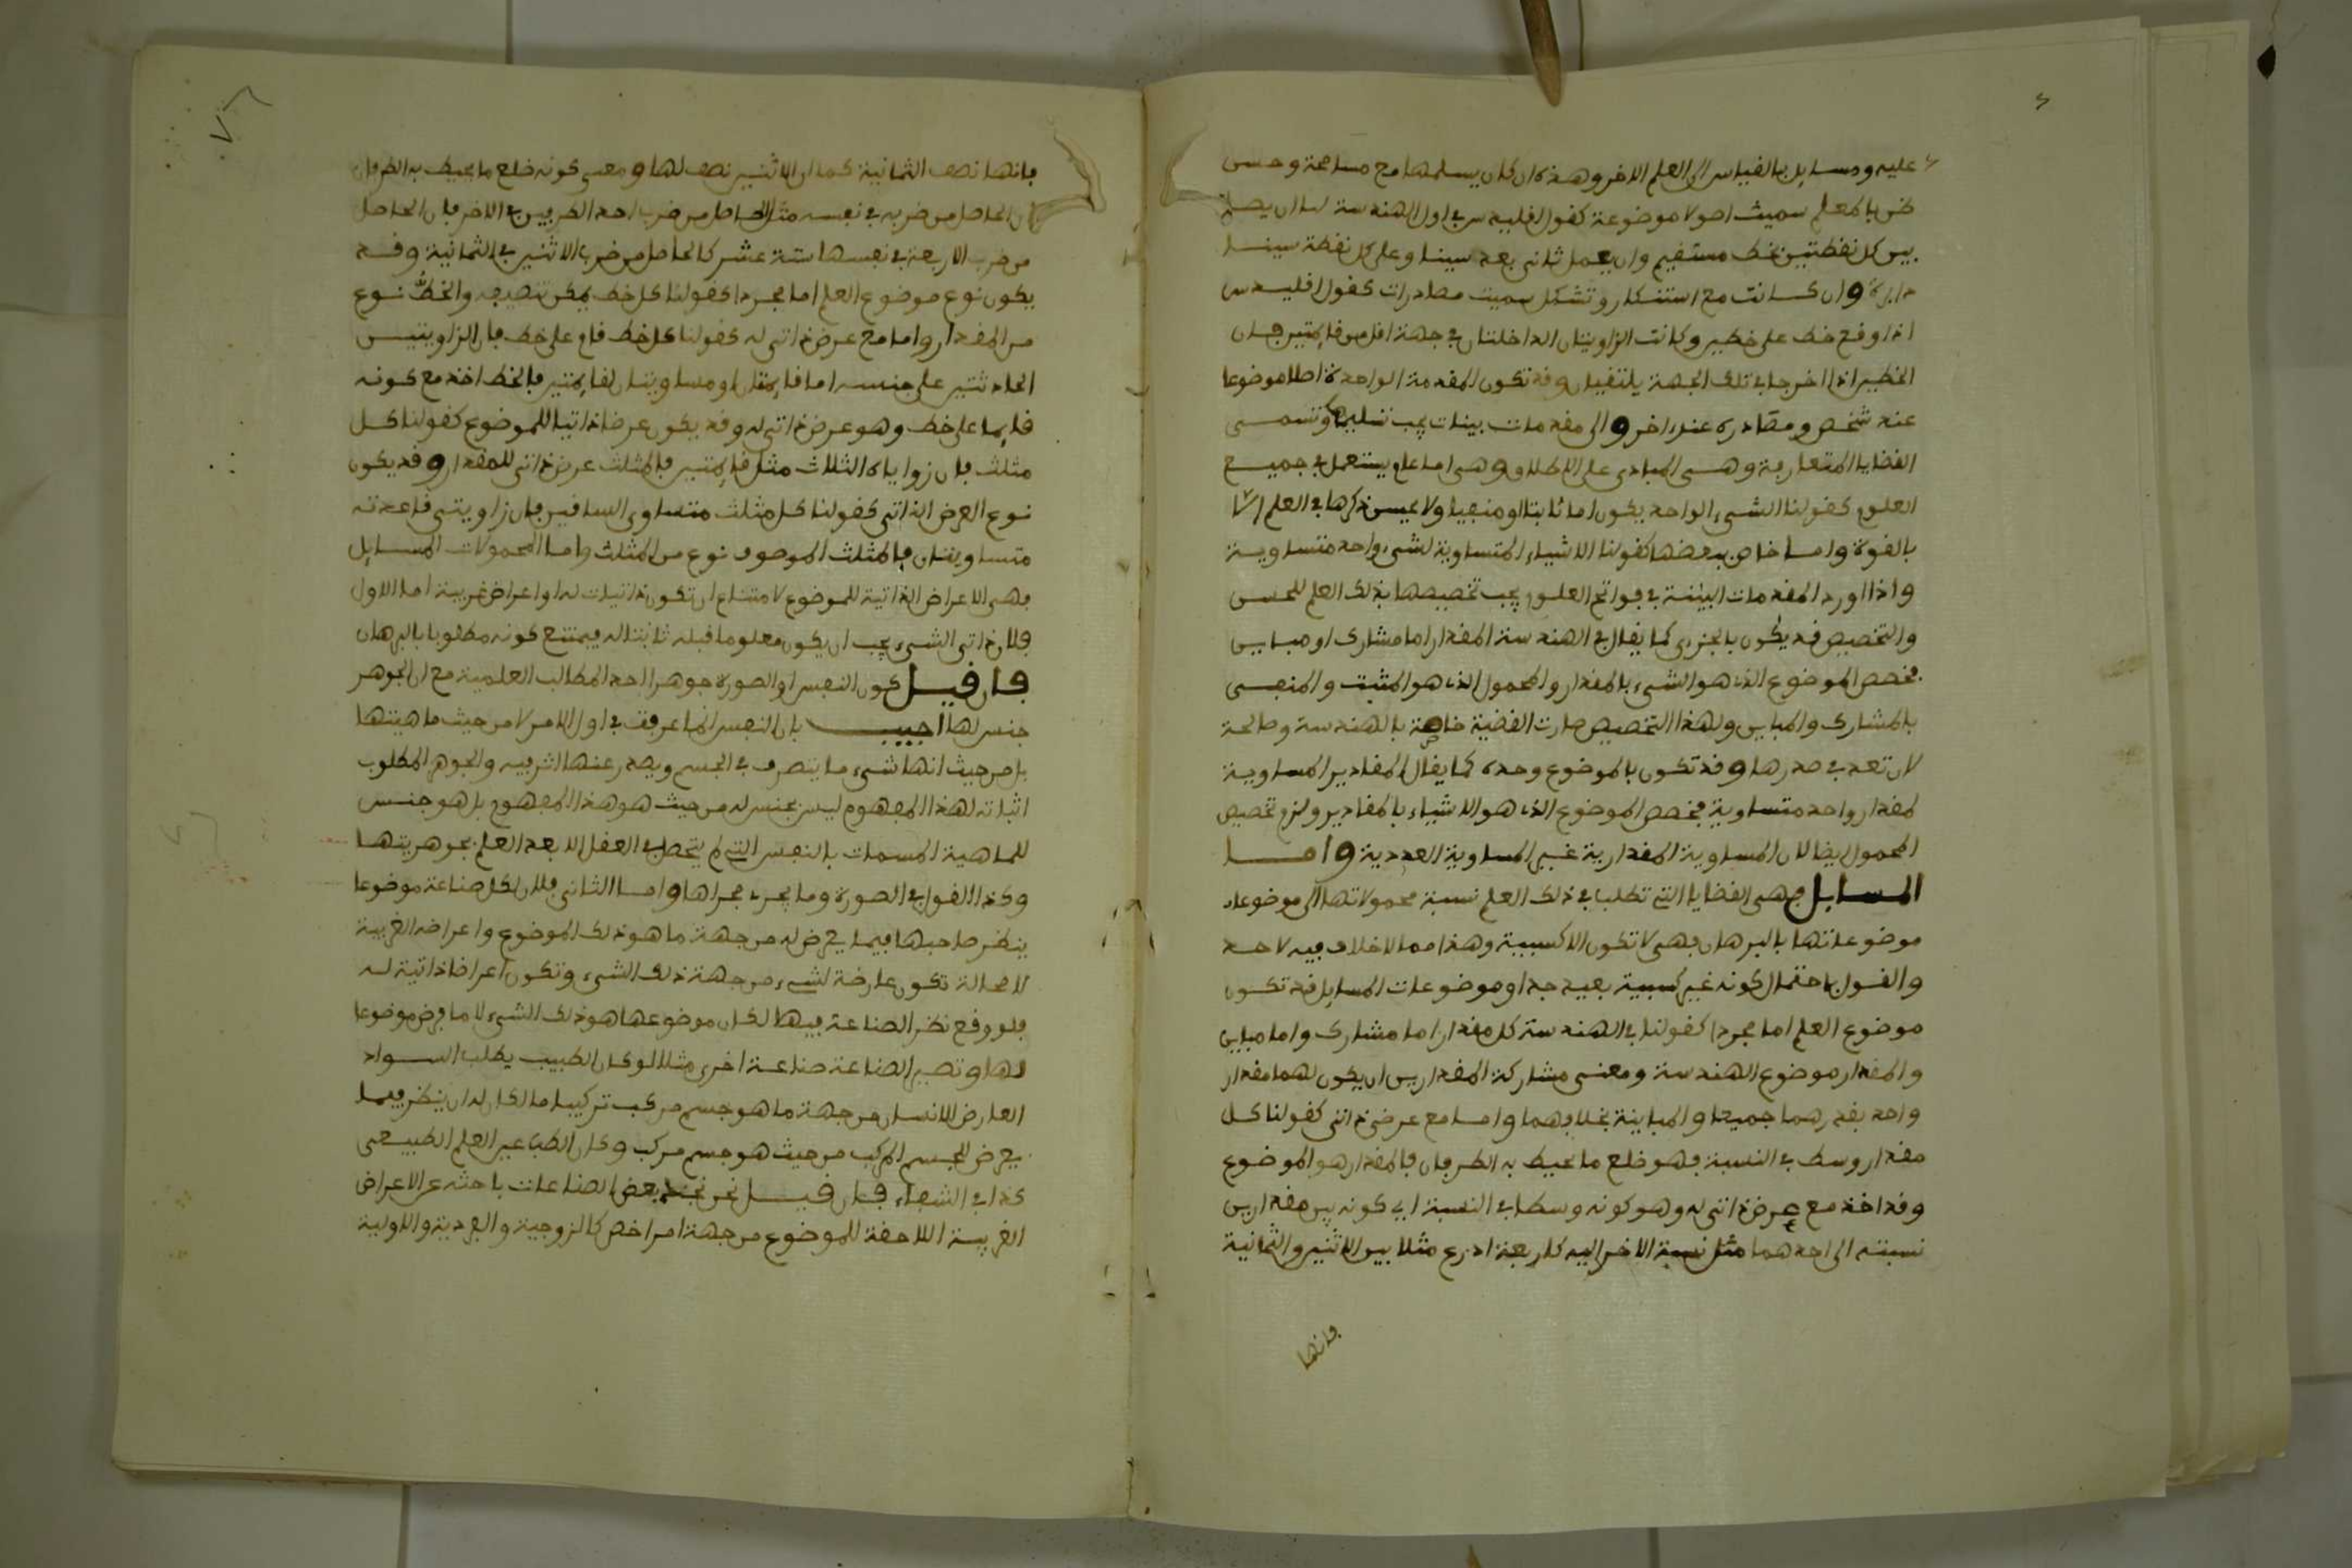 عليه ومسايل بالقياس الى العلم الاخر وهذه ان كان يسلمها مع مسامحة وحسن
ظن بالمعلم سميت اصولا موضوعة كقول اقليدس في اول الهندسة لنا ان يصل
بين كل نقطتين بخط مستقيم وان يعمل ثانى بعد سينا وعلى كل نقطة سينا
دايرة وان كانت مع استنكار وتشكل سميت مصادرات كقول اقليدس
اذا وقع خط على خطين وكانت الزاويتان الداخلتان في جهة اقل من قايمتين فان
الخطين اذا اخرجا في تلك الجهة يلتقيان وقد تكون المقدمة الواحدة اصلا موضوعا
عند شخص ومصادرة عند اخر والى مقدمات بينات يجب تسليمها وتسمى
القضايا المتعارفة وهي المبادى على الاطلاق وهي اما عام يستعمل في جميع
العلوم كقولنا الشىء الواحد يكون اما ثابتا او منفيا ولا يحسن ذكرها في العلم الا
بالقوة واما خاص ببعضها كقولنا الاشياء المتساوية لشىء واحد متساوية
واذا اورد المقدمات البينة في فواتح العلوم يجب تخصيصها بذلك العلم للحسن
والتخصيص قد يكون بالجزءى كما يقال في الهندسة المقدار اما مشارك او مباين
فخصص الموضوع الذى هو الشىء بالمقدار والمحمول الذى هو المثبت والمنفى
بالمشارك والمباين ولهذا التخصيص صارت القضية خاصة بالهندسة وصالحة
لان تعد في صدرها وقد تكون بالموضوع وحده كما يقال المقادير المساوية
لمقدار واحد متساوية فخصص الموضوع الذى هو الاشياء بالمقادير ولزم تخصيص
المحمول ايضا لان المساوية المقدارية غير المساوية العددية واما
المسايل فهى القضايا التى تطلب في ذلك العلم نسبة محمولاتها الى موضوعات
موضوعاتها بالبرهان فهى لا تكون الا كسبية وهذا مما لا خلاف فيه لاحد
والقول باحتمال كونه غير كسبية بعيد جدا وموضوعات المسايل قد تكون
موضوع العلم اما مجردا كقولنا في الهندسة كل مقدار اما مشارك واما مباين
والمقدار موضوع الهندسة ومعنى مشاركة المقدارين ان يكون لهما مقدار
واحد يقدرهما جميعا والمباينة بخلافهما واما مع عرض ذاتى كقولنا كل
مقدار وسط في النسبة فهو ضلع ما يحيط به الطرفان فالمقدار هو الموضوع
وقد اخذ مع عرض ذاتى له وهو كونه وسطا في النسبة اى كونه بين مقدارين
نسبته الى احدهما مثل نسبة الاخر اليه كاربعة اذرع مثلا بين الاثنين والثمانية
فانها
فانها نصف الثمانية كما ان الاثنين نصف لها ومعنى كونه ضلع ما يحيط به الطرفان
ان الحاصل من ضربه في نفسه مثل الحاصل من ضرب احد الطرفين في الاخر فان الحاصل
من ضرب الاربعة في نفسها ستة عشر كالحاصل من ضرب الاثنين في الثمانية وقد
يكون نوع موضوع العلم اما مجردا كقولنا كل خط يمكن تنصيفه والخط نوع
من المقدار واما مع عرض ذاتى له كقولنا كل خط قام على خط فان الزاويتين
الحادثتين على جنبيه اما قايمتان او مساويتان لقايمتين فالخط اخذ مع كونه
قايما على خط وهو عرض ذاتى له وقد يكون عرضا ذاتيا للموضوع كقولنا كل
مثلث فان زواياه الثلاث مثل قايمتين فالمثلث عرض ذاتى للمقدار وقد يكون
نوع العرض الذاتى كقولنا كل مثلث متساوى الساقين فان زاويتى قاعدته
متساويتان فالمثلث الموصوف نوع من المثلث واما المحمولات المسايل
فهى الاعراض الذاتية للموضوع لامتناع ان تكون ذاتيات له او اعراض غريبة اما الاول
فلان ذاتى الشىء يجب ان يكون معلوما قبله ثابتا له فيمتنع كونه مطلوبا بالبرهان
فان قيل كون النفس او الصورة جوهرا احد المطالب العلمية مع ان الجوهر
جنس لها اجيب بان النفس انما عرفت في اول الامر لا من حيث ماهيتها
بل من حيث انها شىء ما يتصرف في الجسم ويصدر عنها اثر فيه والجوهر المطلوب
اثباته لهذا المفهوم ليس بجنس له من حيث هو هذا المفهوم بل هو جنس
للماهية المسمات بالنفس التى لم يتحصل في العقل الا بعد العلم بجوهريتها
وكذا القول في الصورة وما يجرى مجراها واما الثانى فلان لكل صناعة موضوعا
ينظر صاحبها فيما يعرض له من جهة ما هو ذلك الموضوع واعراضه الغريبة
لا محالة تكون عارضة لشىء من جهة ذلك الشىء وتكون اعراضا ذاتية له
فلو وقع نظر الصناعة فيها لكان موضوعها هو ذلك الشىء لا ما فرض موضوعا
لها وتصير الصناعة صناعة اخرى مثلا لو كان الطبيب يطلب السواد
العارض للانسان من جهة ما هو جسم مركب تركيبا ما لكان له ان ينظر فيما
يعرض للجسم المركب من حيث هو جسم مركب وكان الطب عين العلم الطبيعى
كذا في الشفاء فان قيل نحن نجد بعض الصناعات باحثه عن الاعراض
الغريبة اللاحقة للموضوع من جهة امر اخص كالزوجية والفردية والاولية